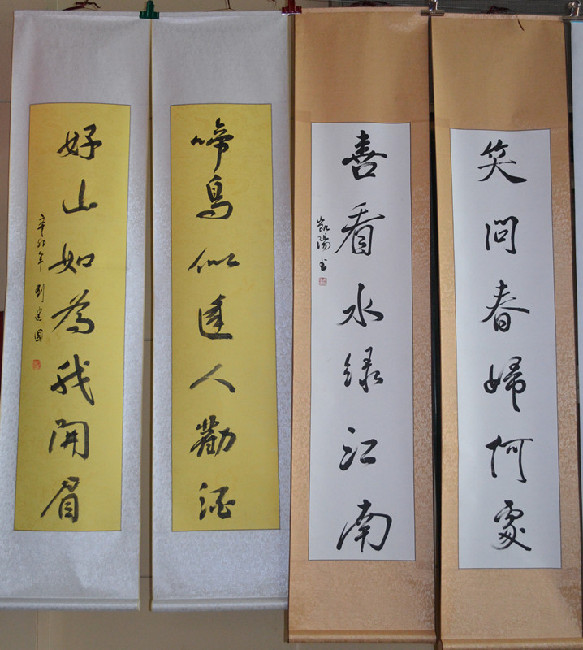 笑問春歸何處
喜看水緑江南
凱陽書
啼鳥似逢人勸酒
好山如為我開眉
辛卯年 劉